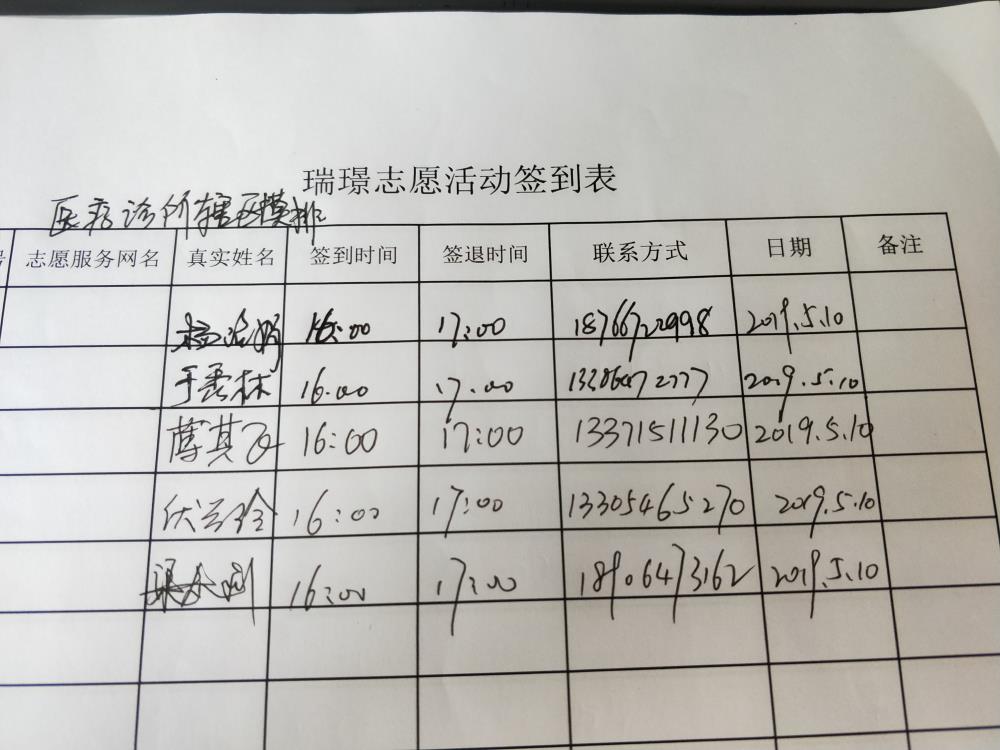 瑞璟志愿活动签到表
医疗诊所辖区摸排
志愿服务网名 真实姓名 签到时间 签退时间 联系方式 日期 备注
16:00 17:00 18766722998 2019.5.10
于 林 16:00 17:00 2019.5.10
薛其飞 16:00 17:00 13371511130 2019.5.10
伏兰玲 16:00 17:00 13305465270 2019.5.10
16:00 17:00 18906473162 2019.5.10